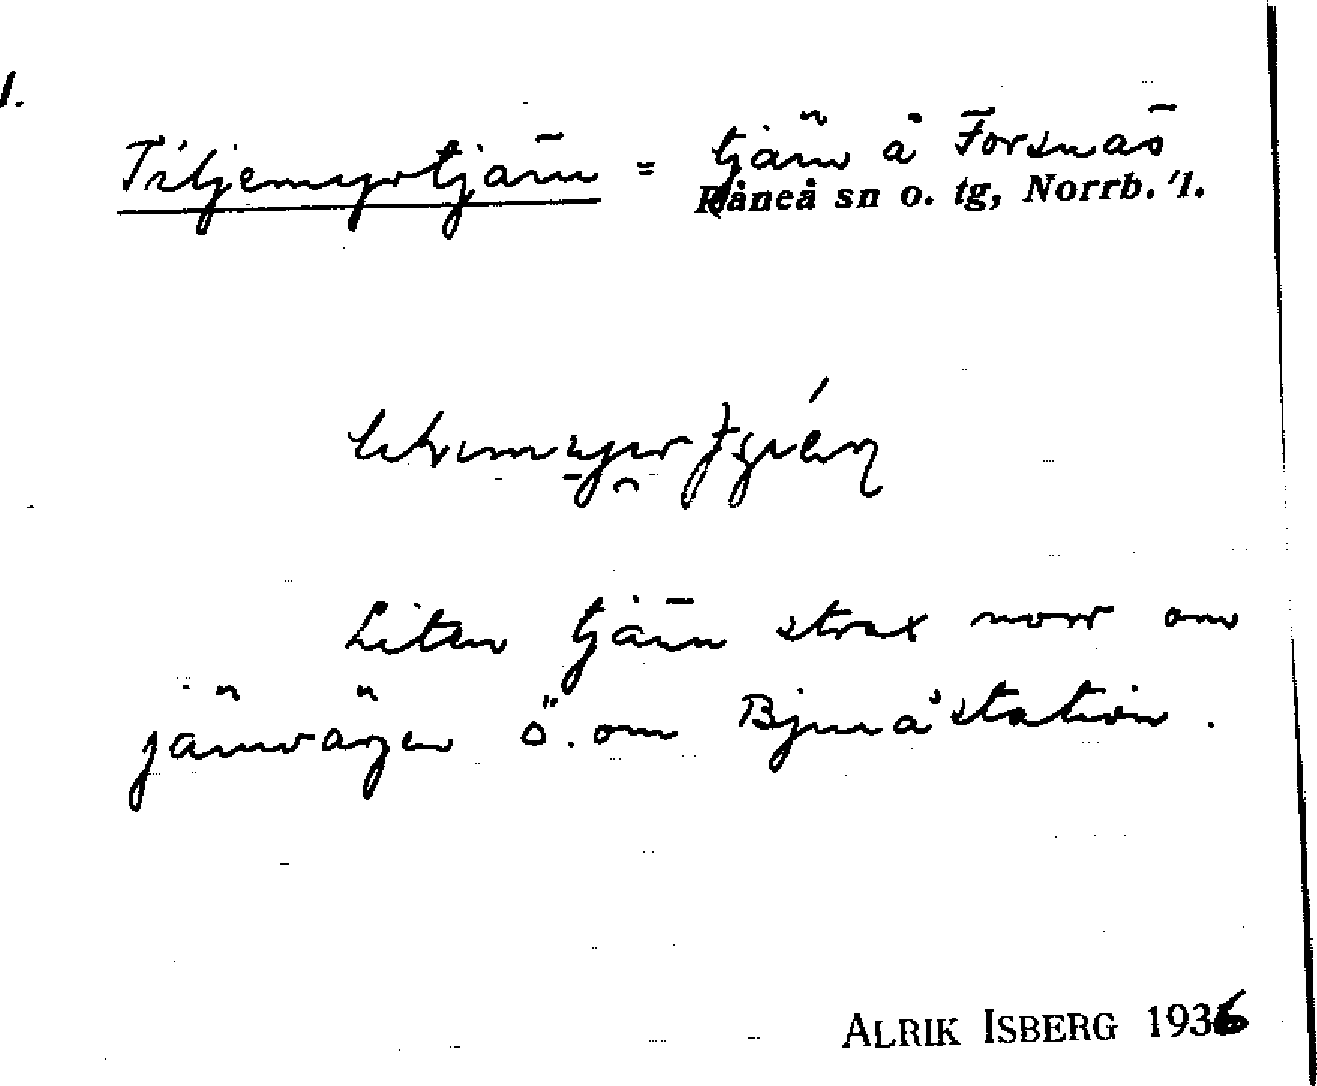 1.
Tiljemyrtjärn = tjärn å Forsnäs
Råneå sn o. tg, Norrb. l.
Liten tjärn strax norr om
järnvägen ö. om Bjurå station.
ALRIK ISBERG 1936